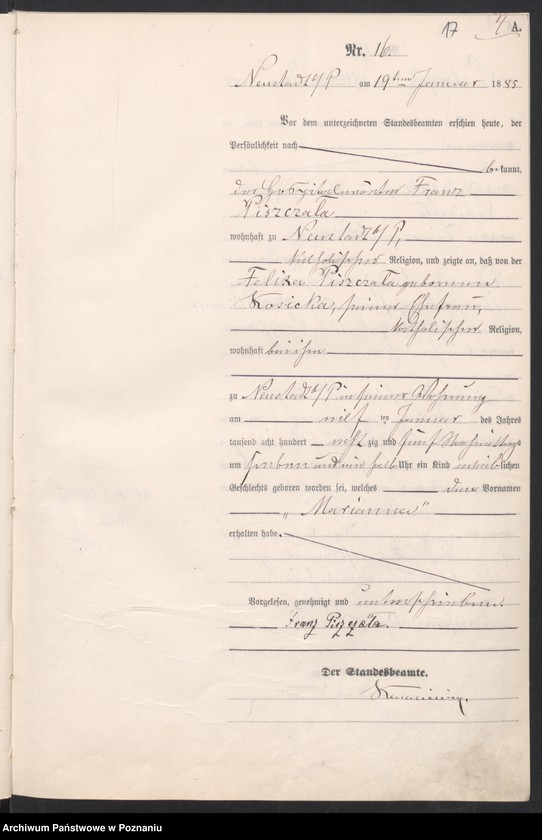 17 4 A.
Nr. 16.
Neustadt b/P am 19ten Januar 1885
Vor dem unterzeichneten Standesbeamten erschien heute, der
Persönlichkeit nach
bekannt,
der Hospitalwärter Franz
Piszczata
wohnhaft zu Neustadt b/P,
katholischer Religion, und zeigte an, daß von der
Felixa Piszczata geborenen
Kosicka, seiner Ehefrau,
katholischer Religion,
wohnhaft bei ihm
zu Neustadt b/P in seiner Wohnung
am elften Januar des Jahres
tausend acht hundert achtzig und fünf Nachmittags
um sieben und ein halb Uhr ein Kind weiblichen
Geschlechts geboren worden sei, welches den Vornamen
„Marianna"
erhalten habe.
Vorgelesen, genehmigt und unterschrieben.
Franz Piszczata.
Der Standesbeamte.
Archiwum Państwowe w Poznaniu